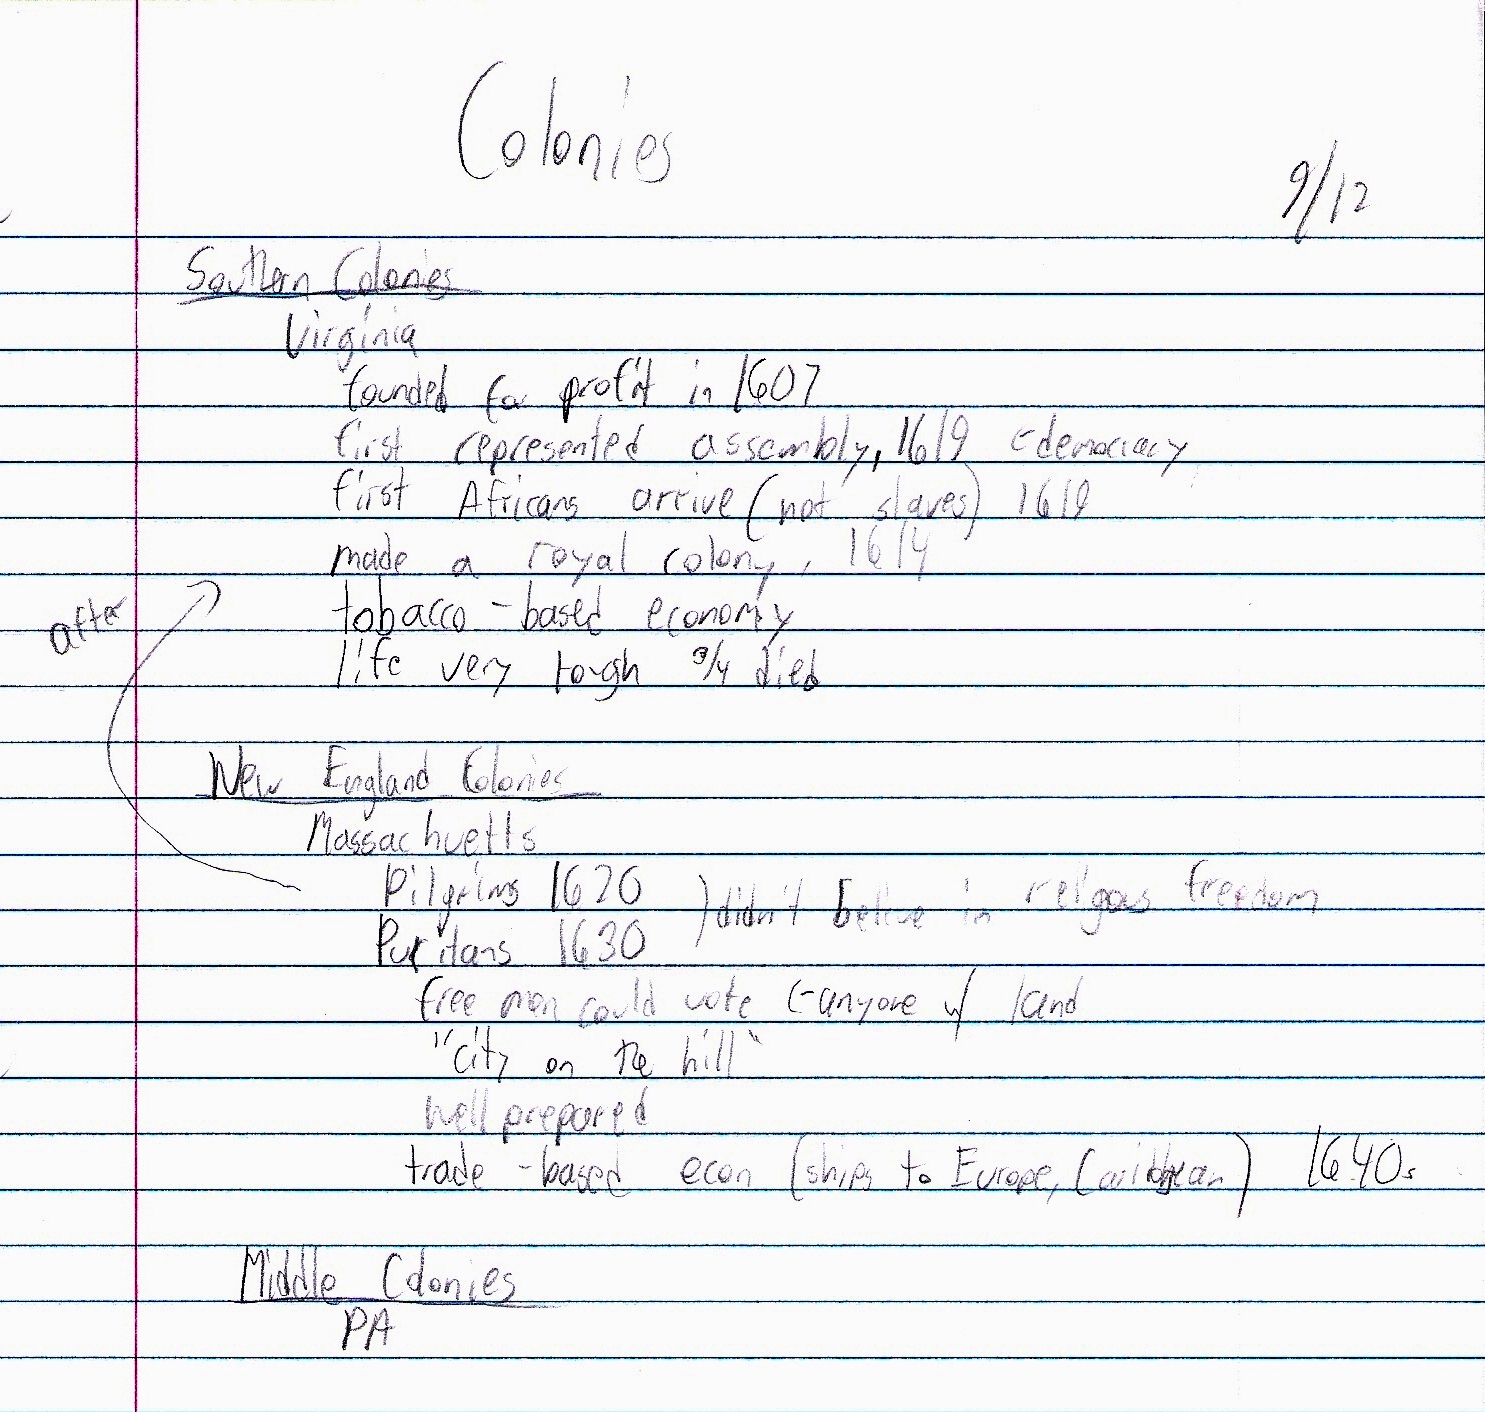 Colonies
9/12
Southern Colonies
Virginia
founded for profit in 1607
first represented assembly, 1619 ←democracy
first Africans arrive (not slaves) 1619
made a royal colony, 1614
after
tobacco-based economy
life very tough 3/4 died
New England Colonies
Massachuetts
Pilgrims 1620
) didn't believe in religous freedom
Puritans 1630
free men could vote ←anyone w/ land
"city on the hill"
well prepared
trade-based econ (ships to Europe, Caribbean) 1640s
Middle Colonies
PA